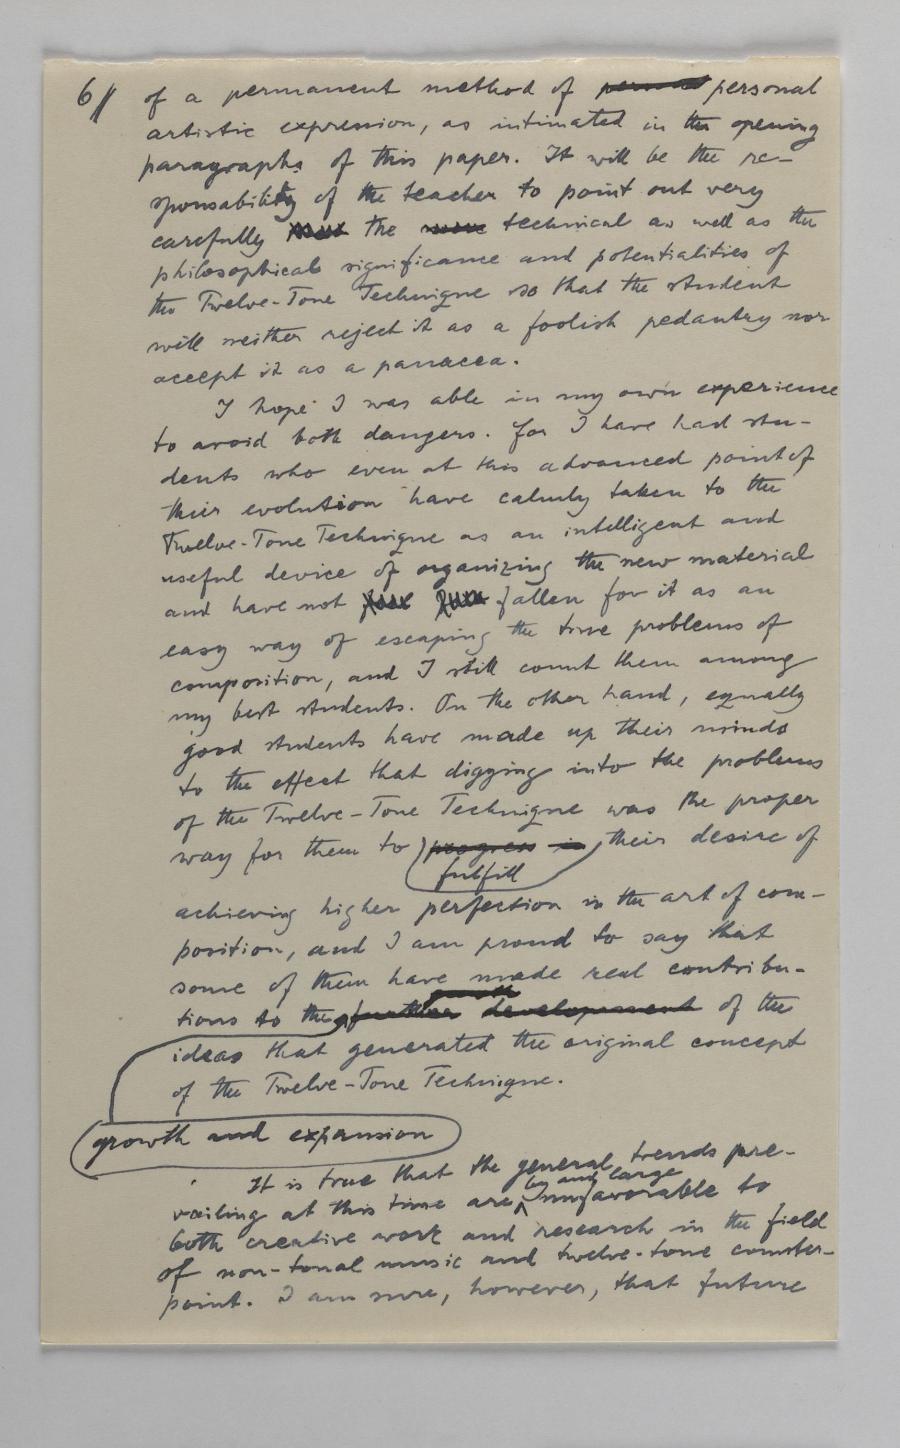 6// of a permanent method of personal
artistic expression, as intimated in the opening
paragraphs of this paper. It will be the re-
sponsability of the teacher to point out very
carefully the technical as well as the
philosophical significance and potentialities of
the Twelve-Tone Technique so that the student
will neither reject it as a foolish pedantry nor
accept it as a panacea.
I hope I was able in my own experience
to avoid both dangers. For I have had stu-
dents who even at this advanced point of
their evolution have calmly taken to the
Twelve-Tone Technique as an intelligent and
useful device of organizing the new material
and have not fallen for it as an
easy way of escaping the true problems of
composition, and I still count them among
my best students. On the other hand, equally
good students have made up their minds
to the effect that digging into the problems
of the Twelve-Tone Technique was the proper
way for them to progress in their desire of
fulfill
achieving higher perfection in the art of com-
position, and I am proud to say that
some of them have made real contribu-
growth
tions to the further developement of the
ideas that generated the original concept
of the Twelve-Tone Technique.
growth and expansion
It is true that the general trends pre-
by and large
vailing at this time are unfavorable to
both creative work and research in the field
of non-tonal music and twelve-tone counter-
point. I am sure, however, that future